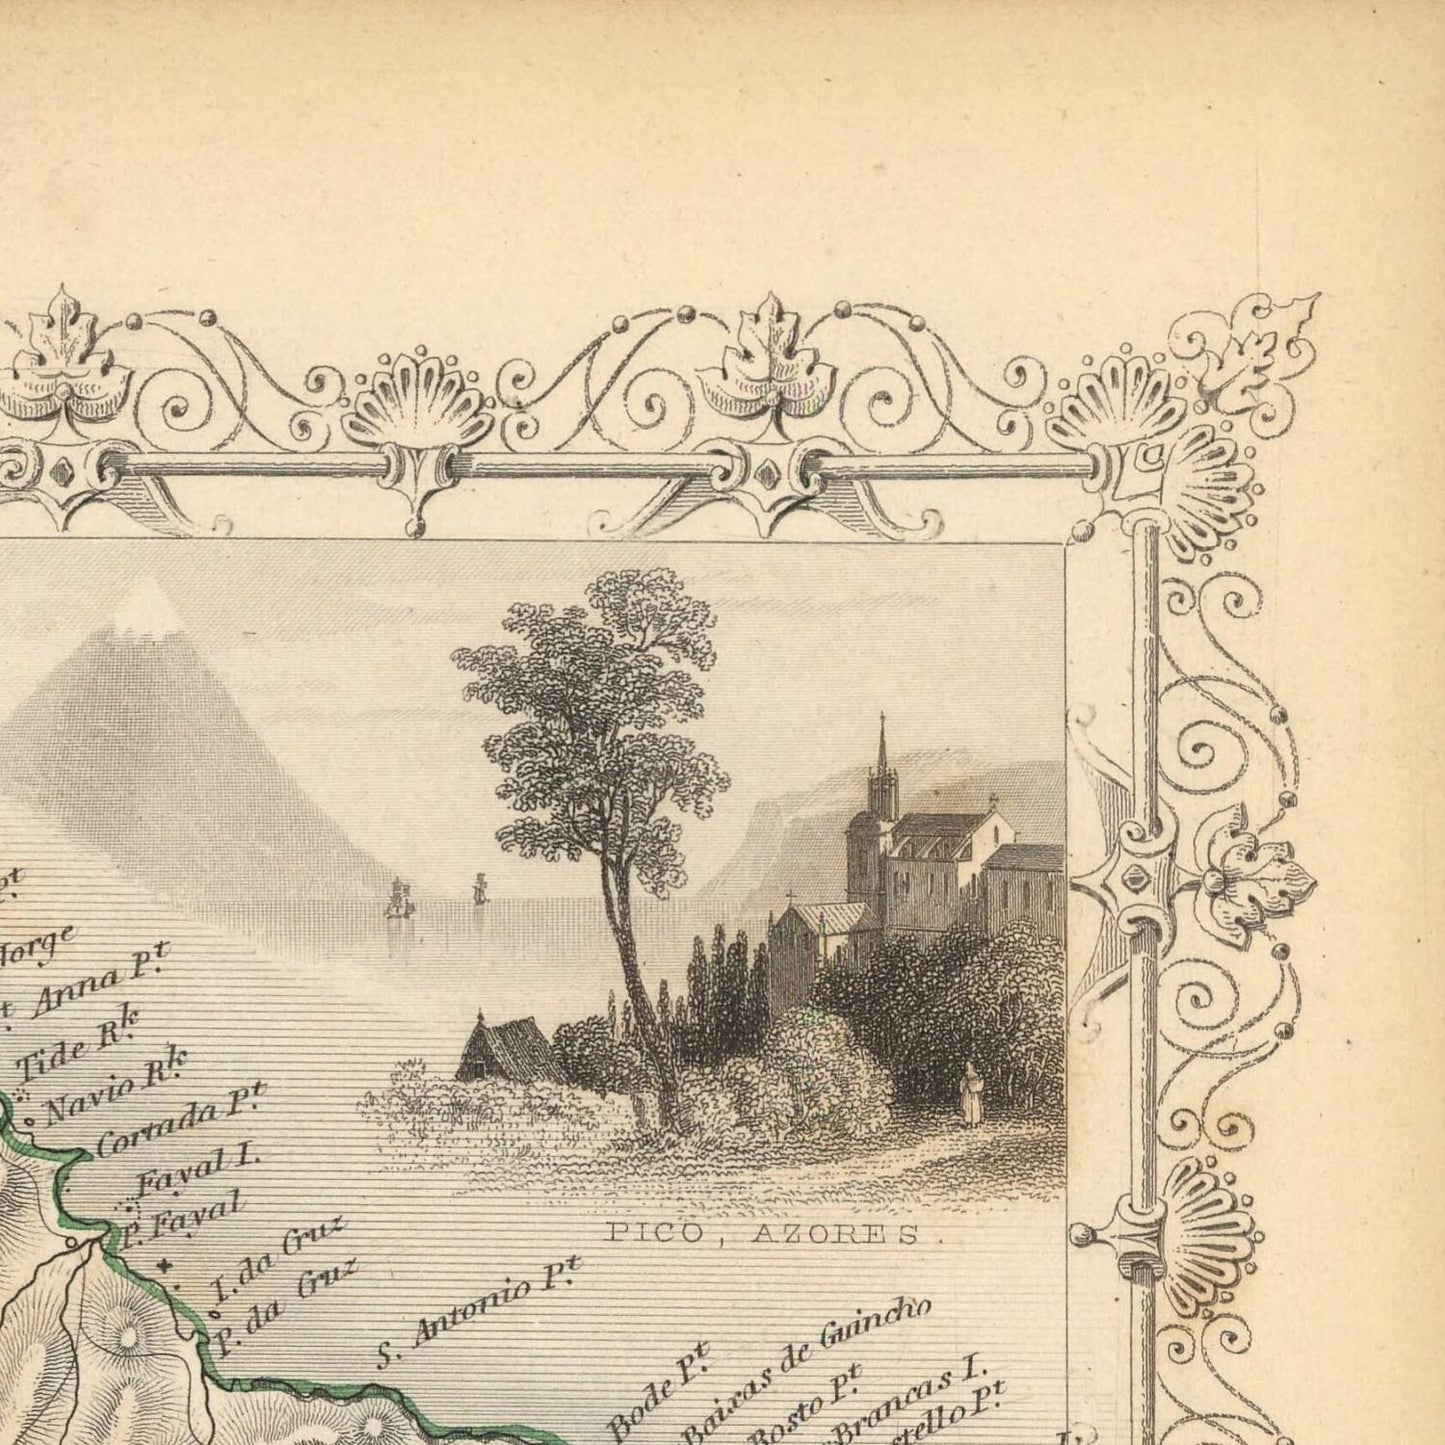 Pt.
Jorge
Anna Pt.
Tide Rk.
Navio Rk.
Cortada Pt.
Fayal I.
P. Fayal
I. da Cruz
P. da Cruz
PICO, AZORES.
S. Antonio Pt.
Bode Pt.
Baixas de Guincho
Bosto Pt.
Brancas I.
stello Pt.